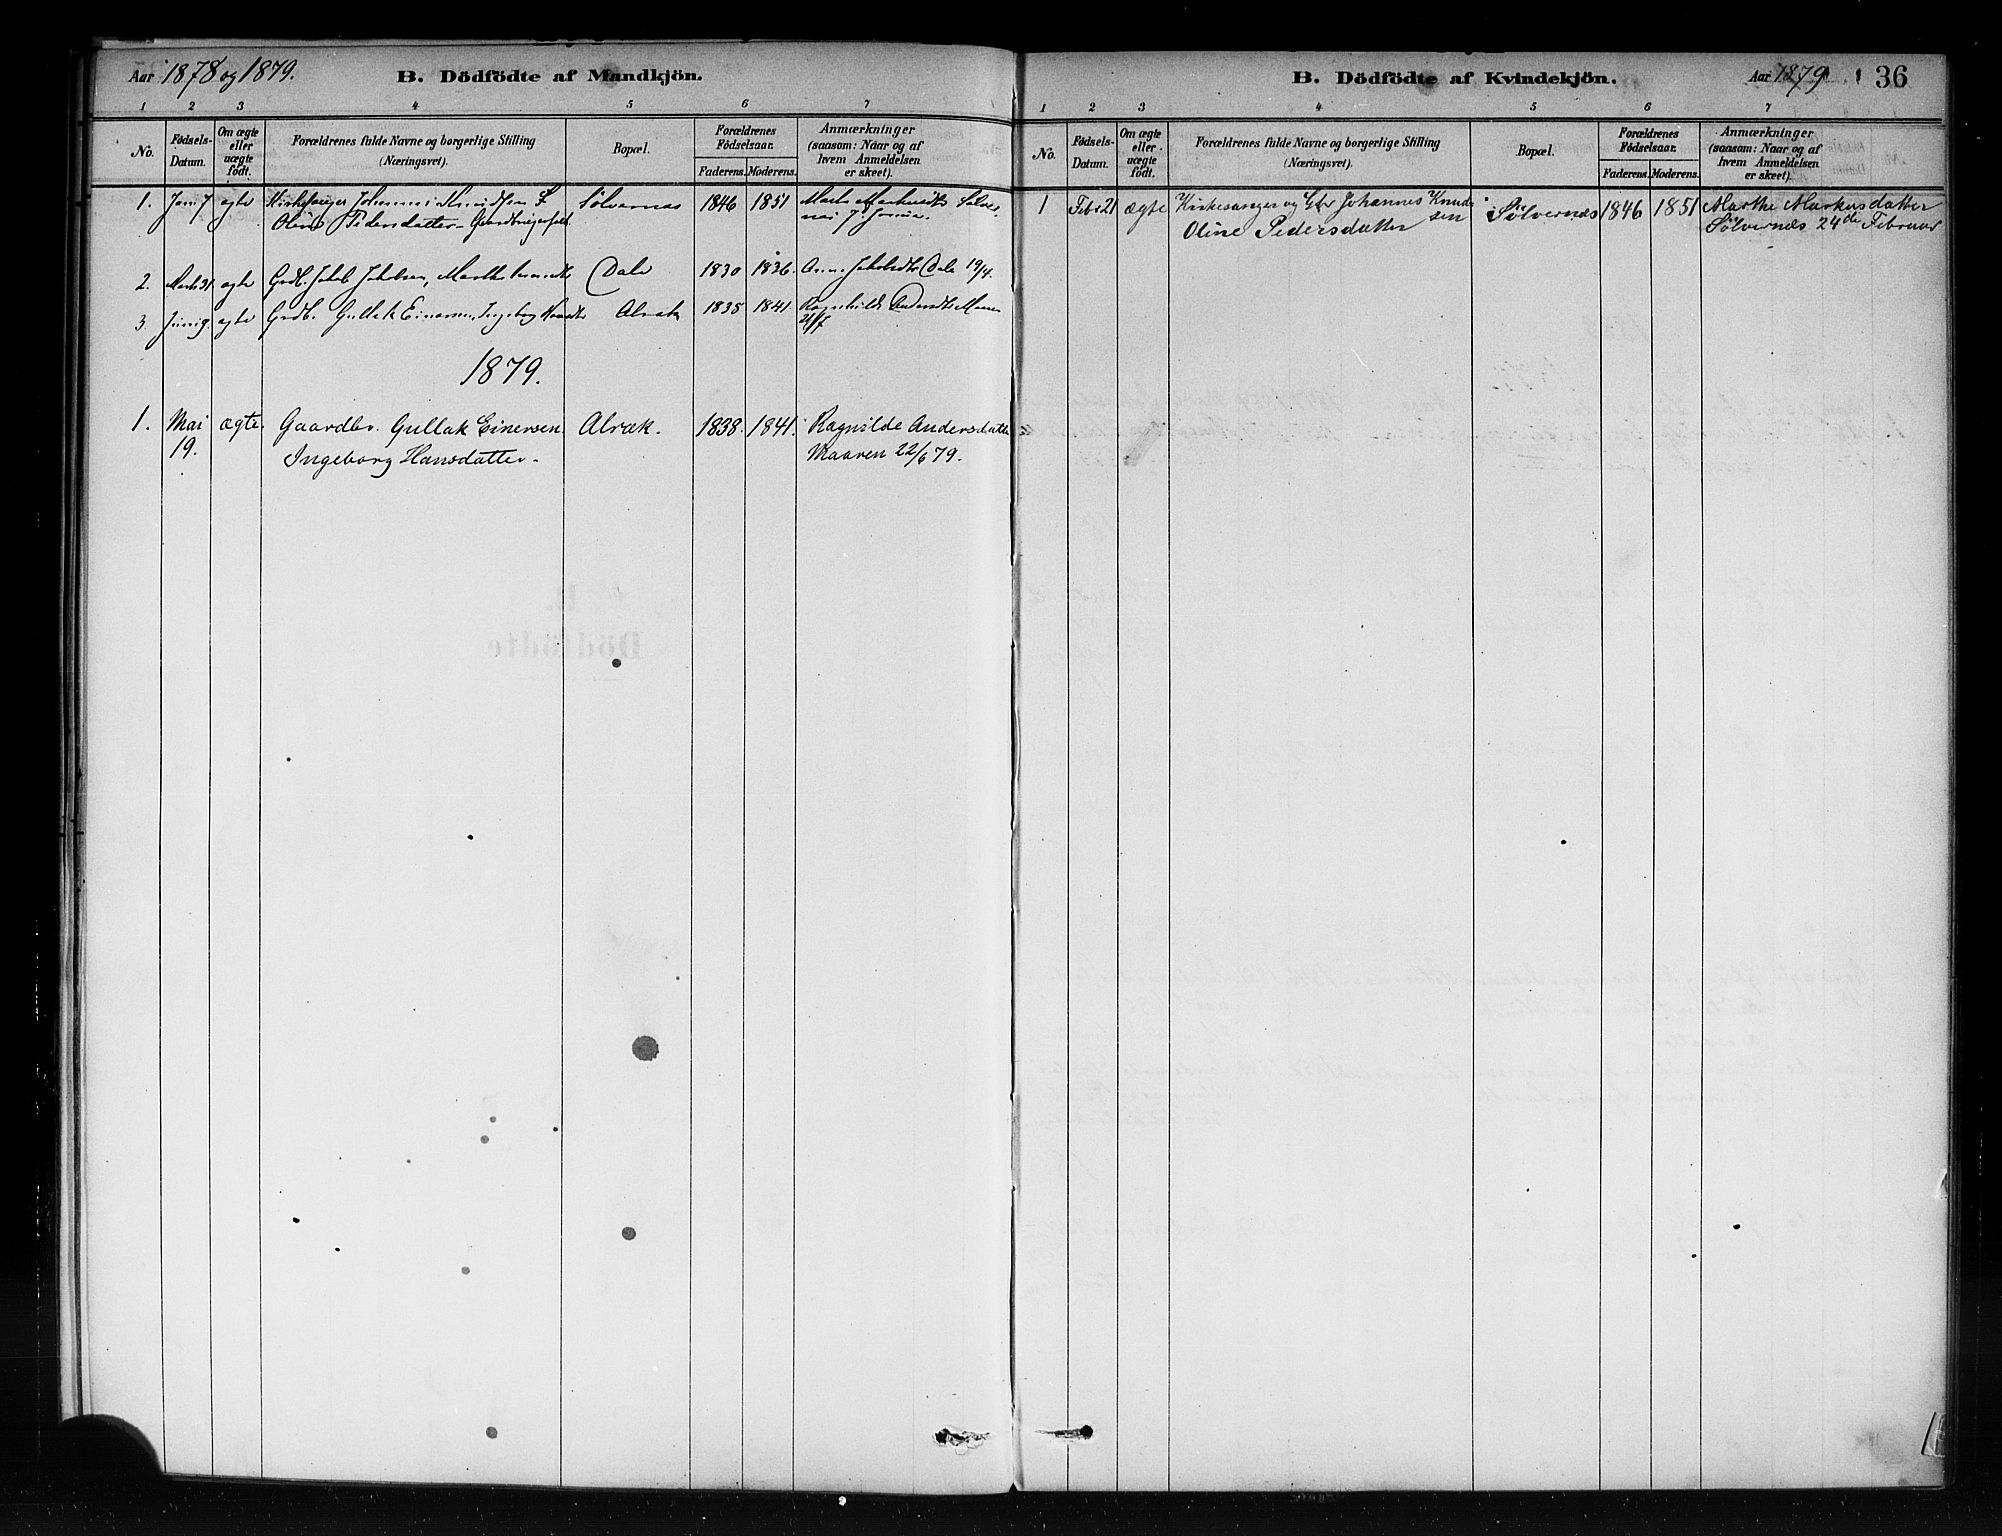 Aar 1878 og 1879. B. Dödfödte af Mandkjön.
1 2 3 4 5 6 7
No. Födsels-Datum. Om ægte eller uægte födt. Forældrenes fulde Navne og borgerlige Stilling (Næringsvei). Bopæl. Forældrenes Födselsaar. Faderens. Moderens. Anmærkninger (saasom: Naar og af hvem Anmeldelsen er skeet).
1. Jan. 7 ægte Kirkesanger Johannes Knudsen Sølvernæs 1846 1851
Oline Pedersdatter
2. Marts 31 ægte Grdb. Jakob Jakobsen, Marthe Dale 1830 1836. Anna Jakobsdtr Dale 19/4.
3. Juni 9. ægte Grdb. Gullak Einersen, Ingeborg Alræk 1835 1841. Ragnhilde Andersdtr Maaren
1879.
1. Mai ægte. Gaardbr. Gullak Einersen Alræk. 1838. 1841. Ragnilde Andersdatter
19. Ingeborg Hansdatter - Maaren 22/6 79.
B. Dödfödte af Kvindekjön. Aar 1879 36
1 2 3 4 5 6 7
No. Födsels-Datum. Om ægte eller uægte födt. Forældrenes fulde Navne og borgerlige Stilling (Næringsvei). Bopæl. Forældrenes Födselsaar. Faderens. Moderens. Anmærkninger (saasom: Naar og af hvem Anmeldelsen er skeet).
1 Febr 21 ægte Kirkesanger og Gbr Johannes Knud Sølvernæs 1846 1851 Marthe Markusdatter
sen
Oline Pedersdatter Sølvernæs 24de Februar